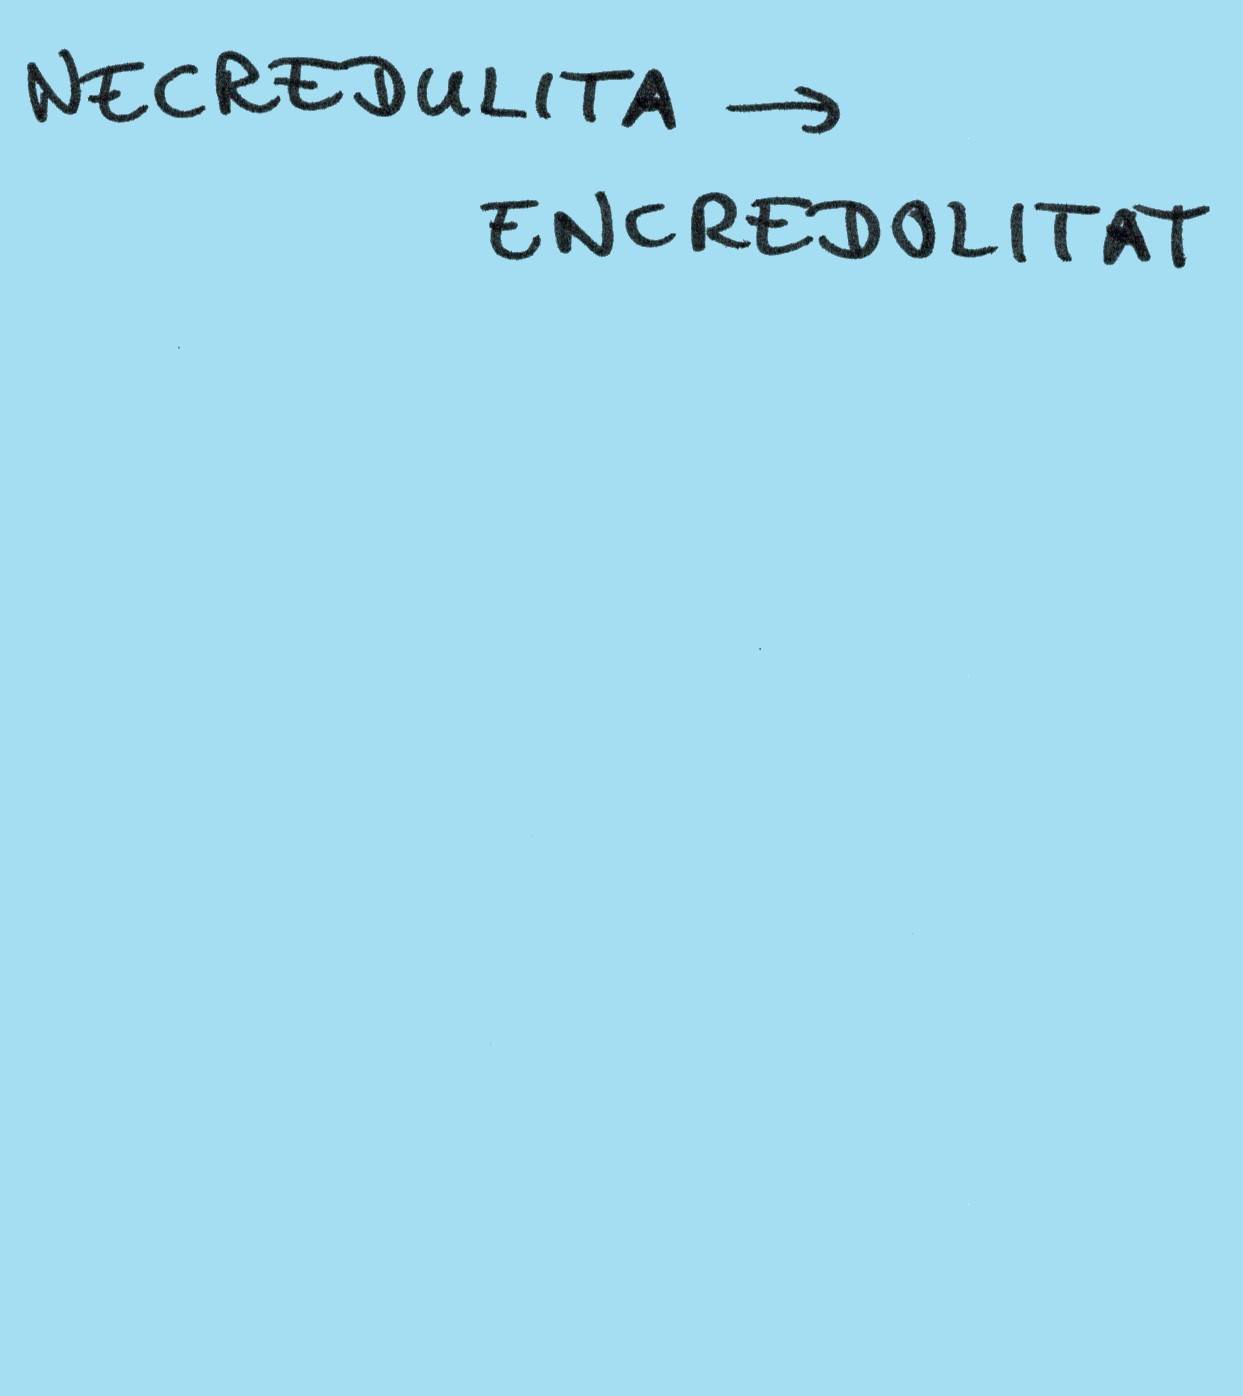 NECREDULITA →
ENCREDOLITAT